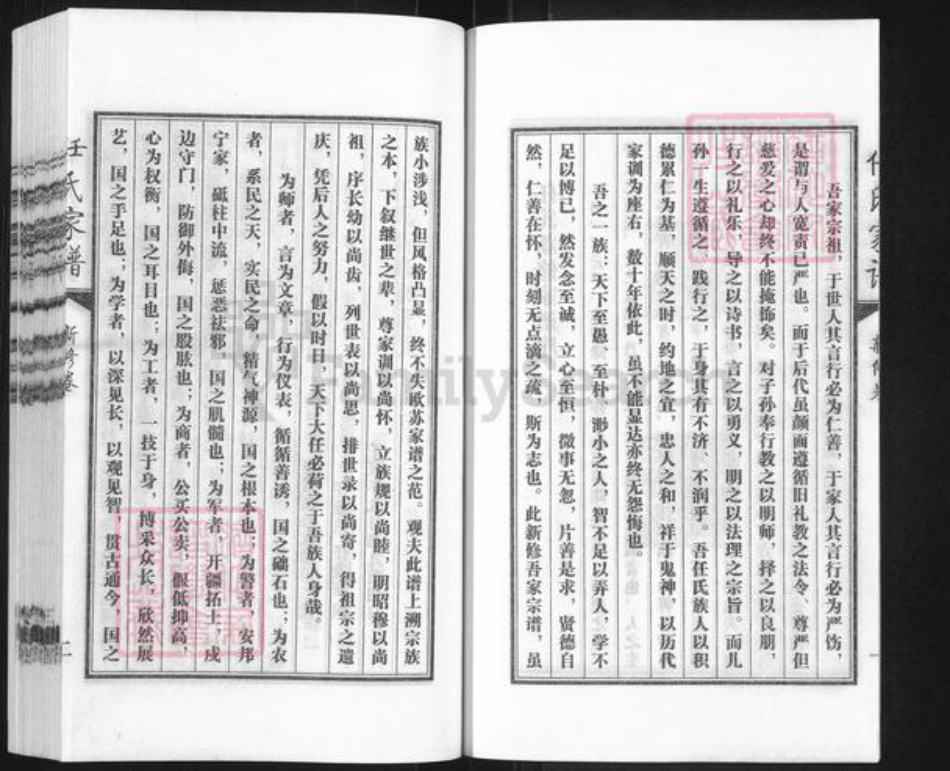 吾家宗祖，于世人其言行必为仁善，于家人其言行必为严饬，
是谓与人宽责已严也。而于后代虽颜面遵循旧礼教之法令、尊严但
慈爱之心却终不能掩饰矣。对子孙奉行教之以明师，择之以良朋，
行之以礼乐，导之以诗书，言之以勇义，明之以法理之宗旨。而儿
孙一生遵循之，践行之，于身其有不济、不润乎。吾任氏族人以积
德累仁为基，顺天之时，约地之宜，忠人之和，祥于鬼神，以历代
家训为座右，数十年依此，虽不能显达亦终无怨悔也。
吾之一族：天下至愚、至朴、渺小之人，智不足以弄人，学不
足以博已，然发念至诚，立心至恒，微事无忽，片善是求，贤德自
然，仁善在怀，时刻无点滴之疏，斯为志也。此新修吾家宗谱，虽
任氏家谱
新修卷
族小涉浅，但风格凸显，终不失欧苏家谱之范。观夫此谱上溯宗族
之本，下叙继世之辈，尊家训以尚怀，立族规以尚睦，明昭穆以尚
祖，序长幼以尚齿，列世表以尚思，排世录以尚寄，得祖宗之遗
庆，凭后人之努力，假以时日，天下大任必荷之于吾族人身哉。
为师者，言为文章，行为仪表，循循善诱，国之础石也；为农
者，系民之天，实民之命，精气神源，国之根本也；为警者，安邦
宁家，砥柱中流，惩恶祛邪，国之肌髓也；为军者，开疆拓土，戍
边守门，防御外侮，国之股肱也；为商者，公买公卖，假低抑高，
心为权衡，国之耳目也；为工者，一技于身，博采众长，欣然展
艺，国之手足也；为学者，以深见长，以观见智，贯古通今，国之
任氏家谱
新修卷
FamilySearch